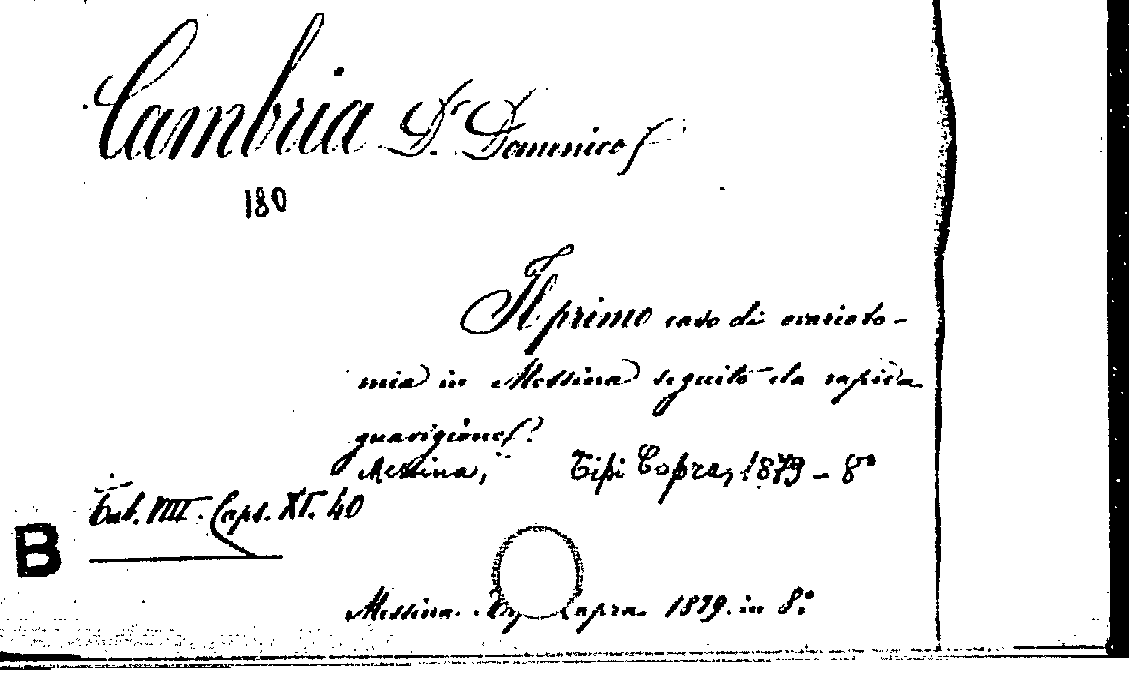 Cambria Dr. Domenico
180
Il primo caso di ovarioto-
mia in Messina seguito da rapida
guarigione.
Messina, Tipi Capra, 1879 – 8°
Tab. VIII. Caps. XI. 40
B
Messina. Capra. 1879. in 8.°